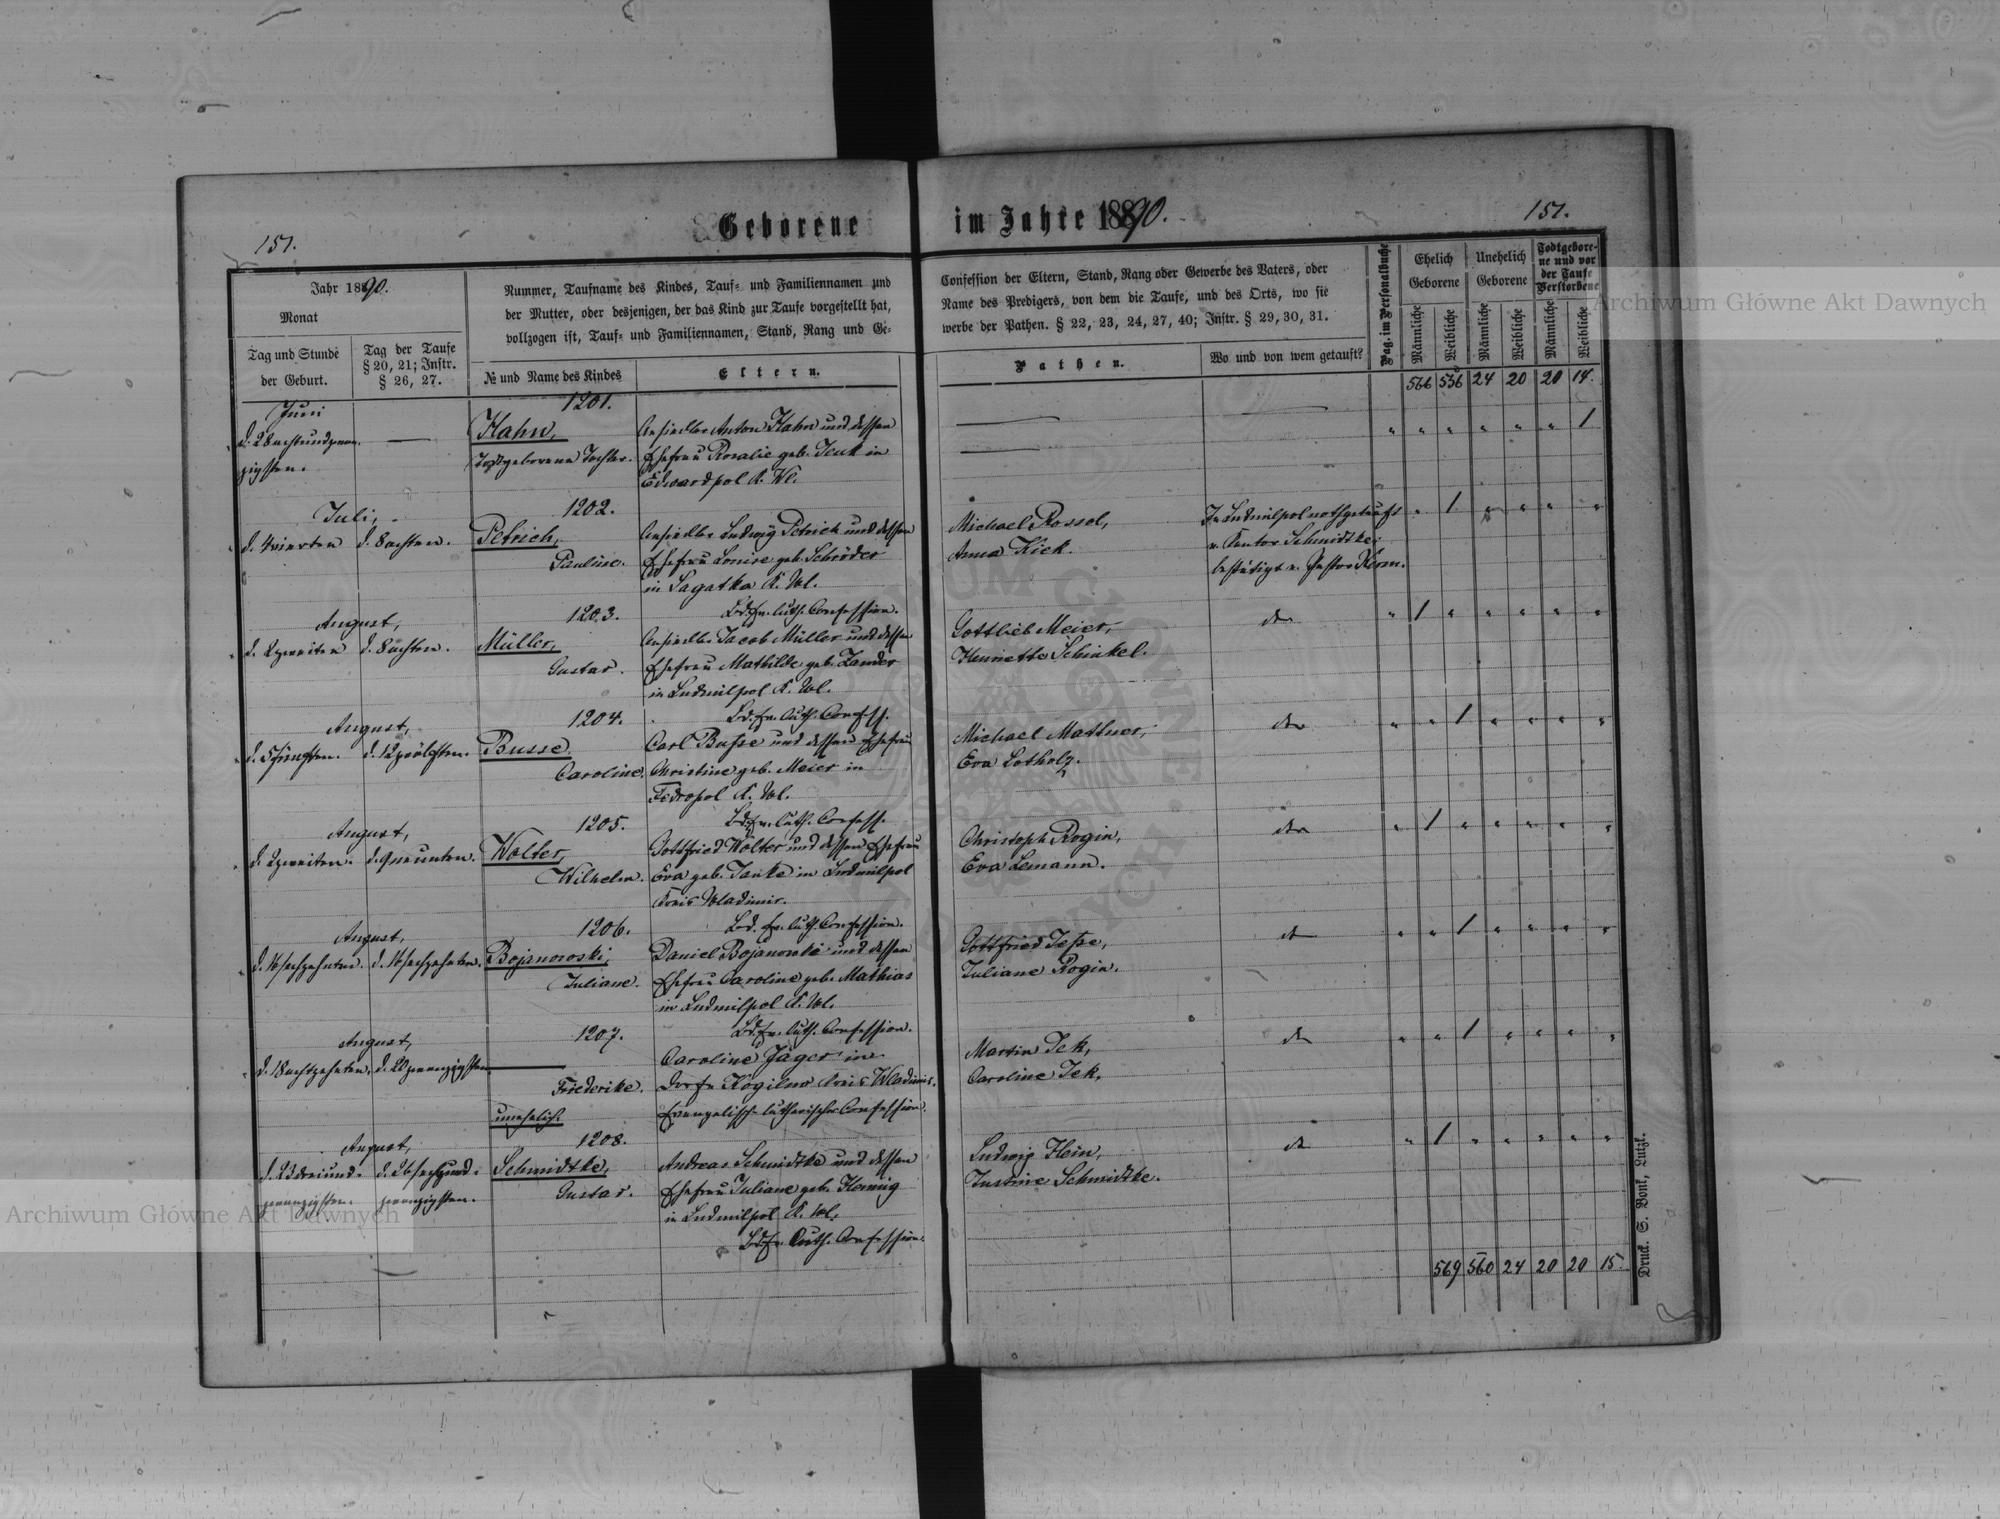 Geborene im Jahre 1890.
151.
151.
Jahr 1890.
Monat
Tag und Stunde
der Geburt.
Tag der Taufe
§ 20, 21; Instr.
§ 26, 27.
Nummer, Taufname des Kindes, Tauf- und Familiennamen und
der Mutter, oder desjenigen, der das Kind zur Taufe vorgestellt hat,
vollzogen ist, Tauf- und Familiennamen, Stand, Rang und Ge-
№ und Name des Kindes
Eltern.
Confession der Eltern, Stand, Rang oder Gewerbe des Vaters, oder
Name des Predigers, von dem die Taufe, und des Orts, wo sie
werbe der Pathen. § 22, 23, 24, 27, 40; Instr. § 29, 30, 31.
Pathen.
Wo und von wem getauft?
Pag. im Personalbuche
Ehelich
Geborene
Unehelich
Geborene
Todtgebore-
ne und vor
der Taufe
Verstorbene
Männliche
Weibliche
Männliche
Weibliche
Männliche
Weibliche
566 556 24 20 20 14.
Juni
d. 28 achtundzwan-
zigsten.
1201.
Hahn,
Todtgeborene Tochter.
Ansiedler Anton Hahn und dessen
Ehefrau Rosalie geb. in
Edwardpol K. Wl.
1
Juli,
d. 4 vierten
d. 8 achten.
1202.
Petrich,
Pauline.
Ansiedler Ludwig Petrich und dessen
Ehefrau Louise geb. Schröder
in Sagatka K. Wl.
Bd. ev. luth. Confession.
Michael Rossol,
Anna Kiek.
In Ludmilpol nothgetauft
v. Kantor Schmidtke;
bestätigt v. Pastor Kerm.
1
August,
d. 2 zweiten
d. 8 achten.
1203.
Müller,
Gustav.
Ansiedler Jacob Müller und dessen
Ehefrau Mathilde geb. Zander
in Ludmilpol K. Wl.
Bd. ev. luth. Confess.
Gottlieb Meier,
Henriette Schinkel.
do
1
August,
d. 5 fünften.
d. 12 zwölften.
1204.
Busse
Caroline.
Carl Busse und dessen Ehefrau
Christine geb. Meier in
Fedropol K. Wl.
Bd. ev. luth. Confess.
Michael Mattner,
Eva Lotholz.
do
1
August,
d. 2 zweiten.
d. 9 neunten.
1205.
Wolter,
Wilhelm.
Gottfried Wolter und dessen Ehefrau
Eva geb. Janke in Ludmilpol
Kreis Wladimir.
Bd. ev. luth. Confession.
Christoph Rogin,
Eva Lemann.
do
1
August,
d. 16 sechzehnten.
d. 16 sechzehnten.
1206.
Bojanowski,
Juliane.
Daniel Bojanowski und dessen
Ehefrau Caroline geb. Mathias
in Ludmilpol K. Wl.
Bd. ev. luth. Confession.
Gottfried Jesse,
Juliane Rogin.
do
1
August,
d. 18 achtzehnten.
d. 20 zwanzigsten
1207.
Friederike.
unehelich.
Caroline Jäger in
Dorfe Kogilno Kreis Wladimir.
Evangelisch-lutherischer Confession.
Martin Jek,
Caroline Jek,
do
1
August,
d. 23 dreiund-
zwanzigsten.
d. 26 sechsund-
zwanzigsten.
1208.
Schmidtke,
Gustav.
Andreas Schmidtke und dessen
Ehefrau Juliane geb. Hennig
in Ludmilpol K. Wl.
Bd. ev. luth. Confession.
Ludwig Hein,
Justine Schmidtke.
do
1
569 560 24 20 20 15
Druck. S. Bonk, Lutzk.
Archiwum Główne Akt Dawnych
Archiwum Główne Akt Dawnych